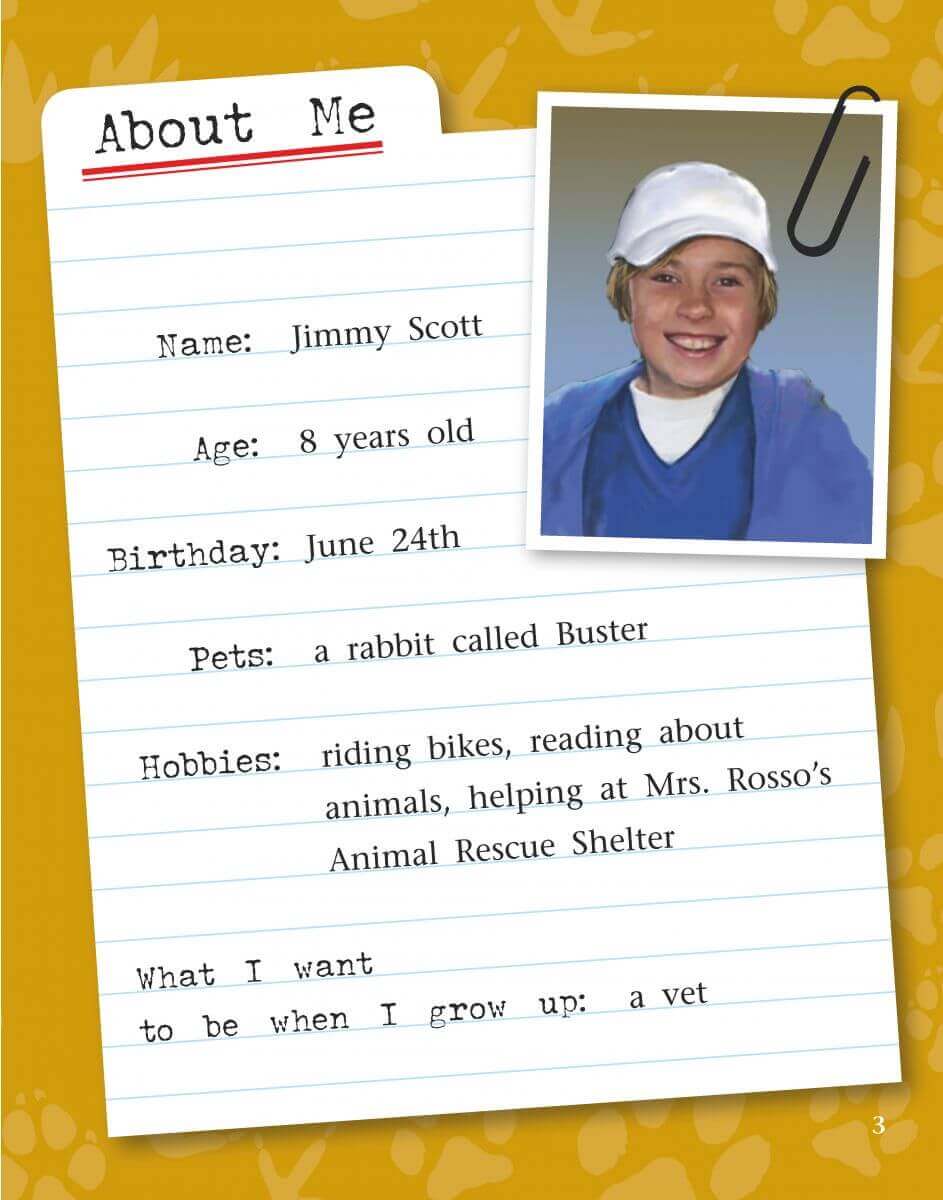 About Me
Name: Jimmy Scott
Age: 8 years old
Birthday: June 24th
Pets: a rabbit called Buster
Hobbies: riding bikes, reading about
animals, helping at Mrs. Rosso's
Animal Rescue Shelter
What I want
to be when I grow up: a vet
3